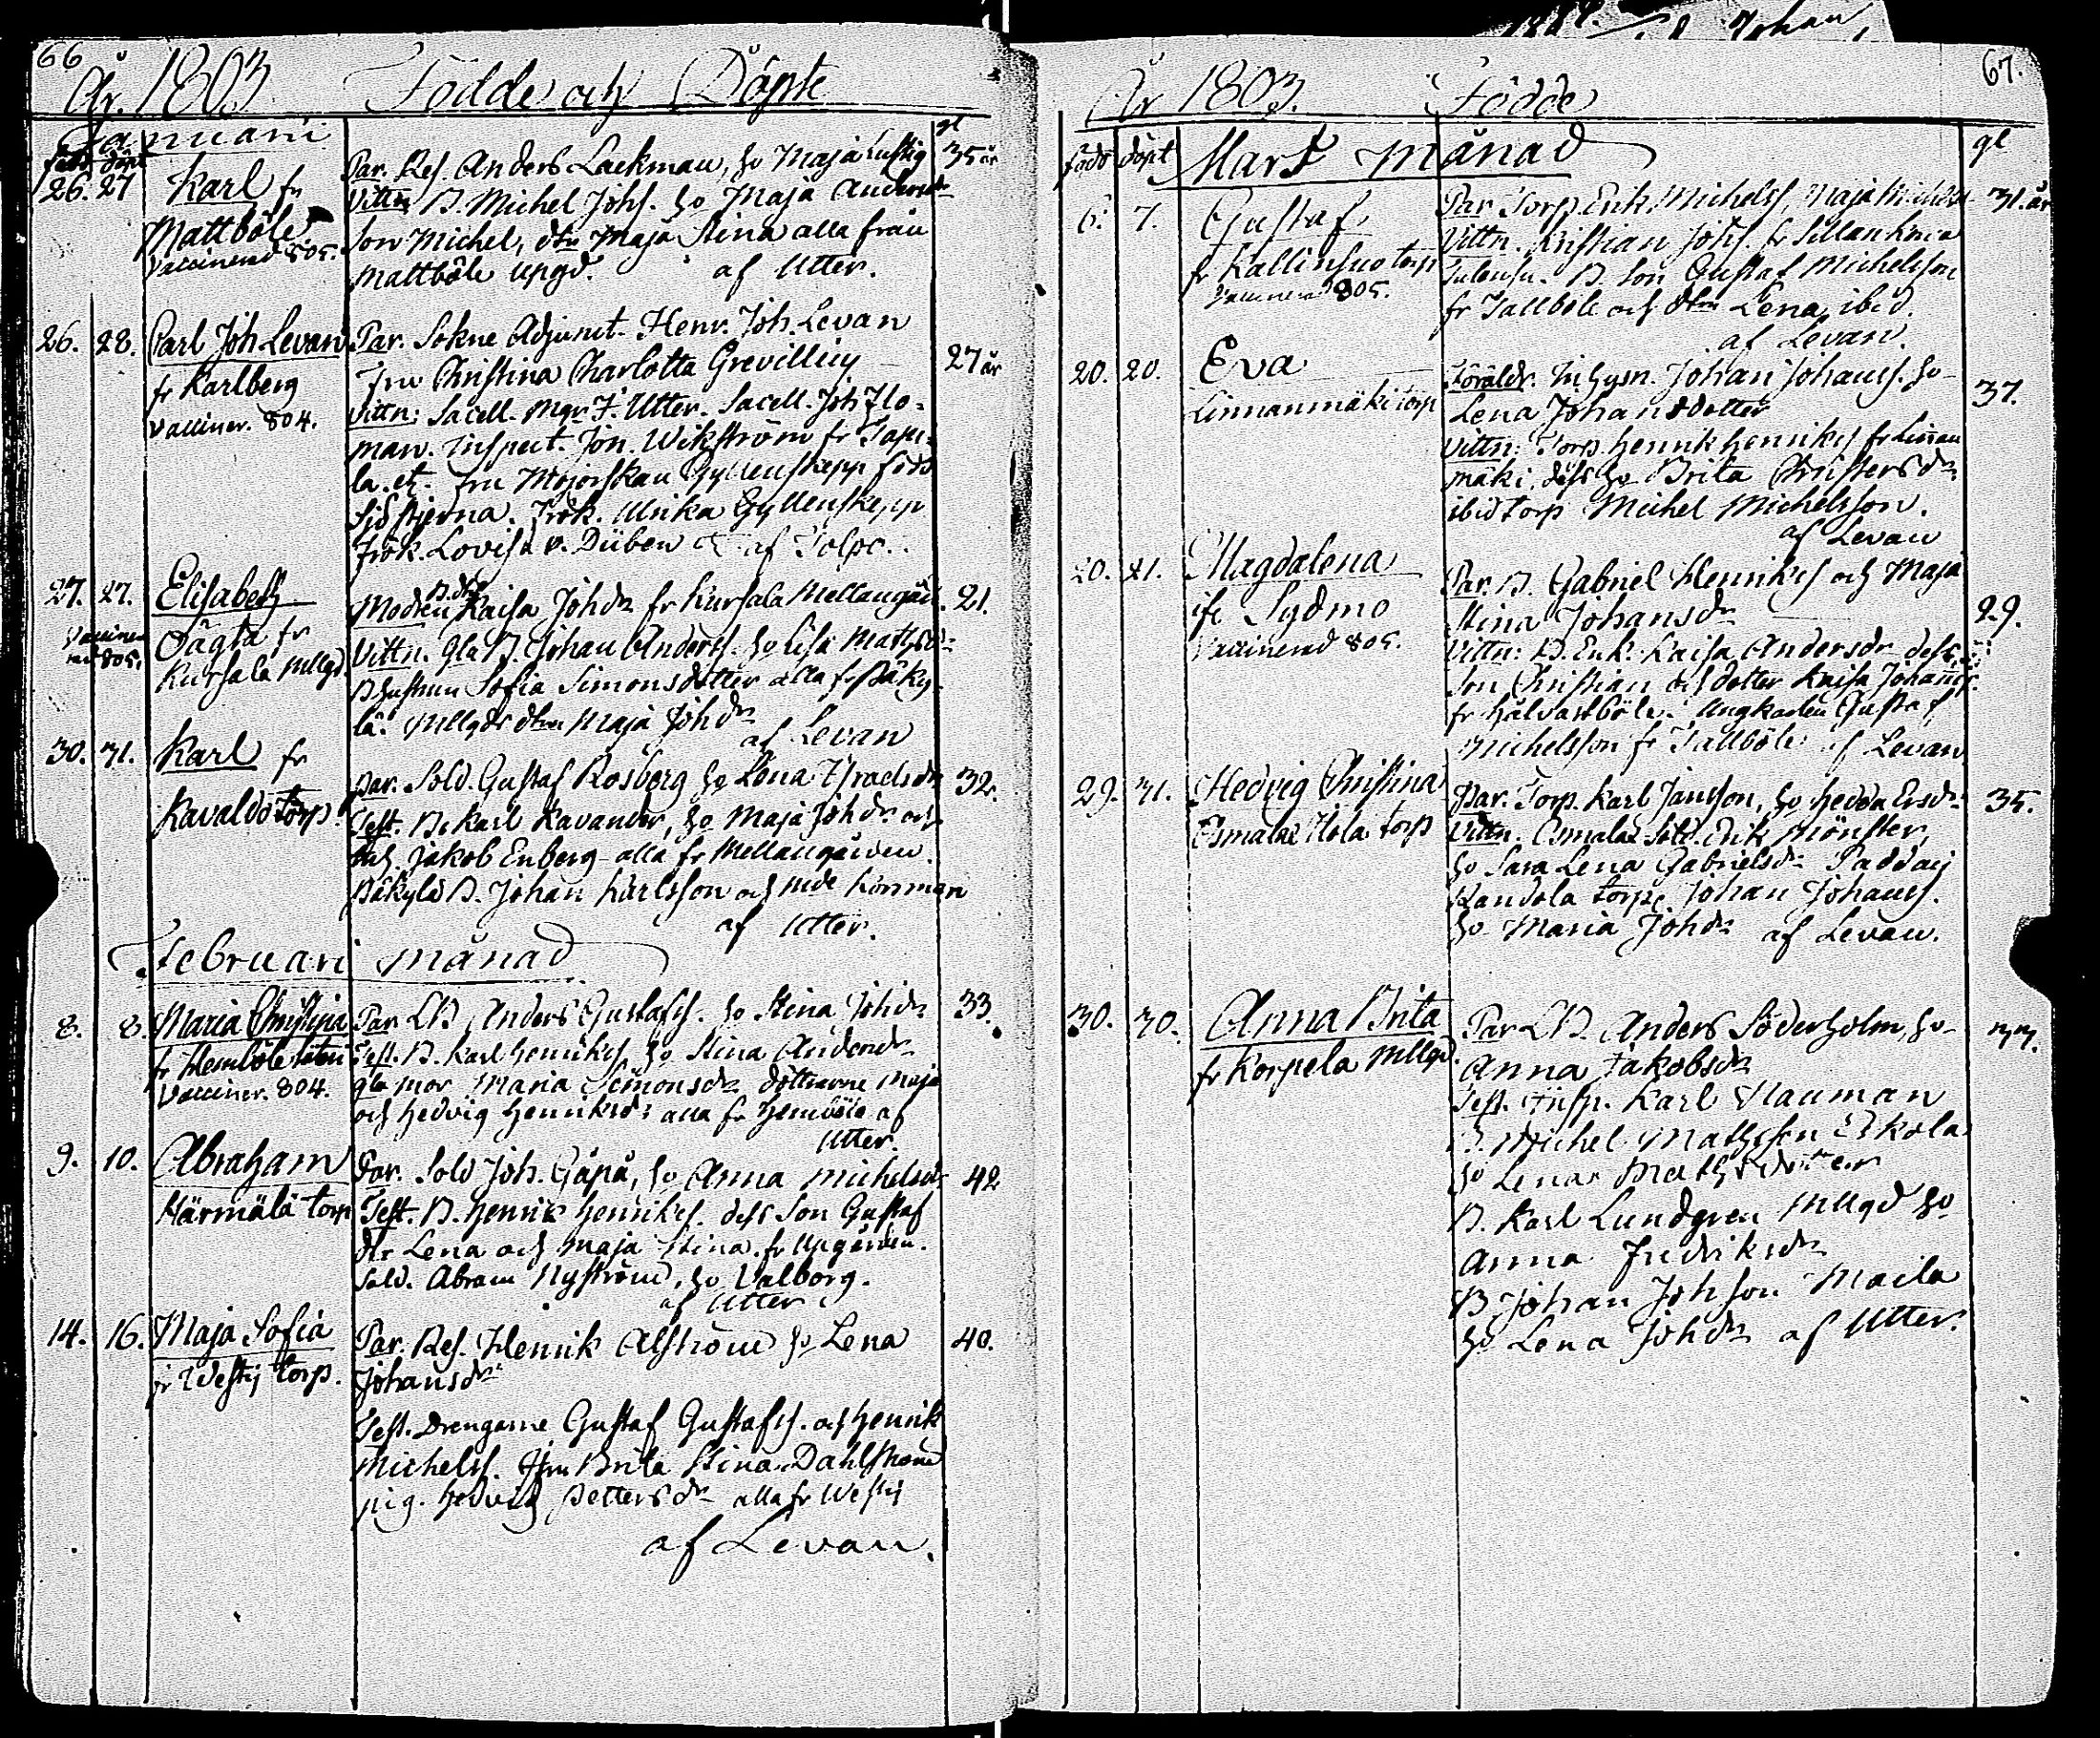 66
År. 1803. Födde och Döpte
Januarii
född döpt
26. 27 Karl fr
Mattböle
Vaccinerad 805.
Par. Res. Anders Lackman, ho Maja Lustig 35 år
Vittn B. Michel Johs. ho Maja Andersdr
son Michel, dtr Maja Stina alla från
Mattböle upgd. af Utter.
26. 28. Carl Joh. Levan
fr Karlberg
Vacciner. 804.
Par. Sokne Adjunct. Henr. Joh. Levan
Fru Christina Charlotta Grevillius 27 år
Vittn: Sacell. Mgr F. Utter. Sacell. Joh Flo-
man. Inspect. Jon. Wikström fr
la. etc. Fru Majorskan Gyllenskepp född
Sjöstjerna. Frök. Ulrika Gyllenskepp
Frök. Lovisa v. Düben af
27. 27. Elisabeth
Oägta fr
Kursala Mllgd
Vaccine
rad 805.
Modren B.dtr Kaisa Johdr fr Kursala Mellangård. 21.
Vittn. Gla B. Johan Anders. ho Lisa Mathsdr
B hustrun Sofia Simonsdotter alla fr Päky-
lä. Mllgds dtr Maja Johdr
af Levan
30. 31. Karl fr
Kavalds torp.
Par. Sold. Gustaf Rosberg ho Lena Israelsdr 32.
Test. B. Karl Kavander, ho Maja Johdr och
Jakob Enberg alla fr Mellangården.
Päkylä B. Johan Karlsson och
af Utter.
Februari månad
8. 8. Maria Christina
fr Hemböle
Vacciner. 804.
Par LB Anders Gustafs. ho Stina Johdr 33.
Test. B. Karl Henriks. ho Stina Andersdr
gla mor Maria Simonsdr döttrarne Maja
och Hedvig Henriksdr alla fr Hemböle af
Utter.
9. 10. Abraham
Härmälä torp
Par. Sold Joh. Gåpå, ho Anna Michelsdr 42
Test. B. Henric Henriks. dess Son Gustaf
dtr Lena och Maja Stina fr Upgården.
Sold. Abram Nyström, ho Valborg.
af Utter
14. 16. Maja Sofia
fr Westij torp.
Par. Res. Henrik Alström ho Lena 40.
Johansdr
Test. Drengarne Gustaf Gustafs. och Henrik
Michels. Jfru Brita Stina Dahlström
pig. Hedvig Pettersdr alla fr Westij
af Levan.
67.
År 1803. Födde
född döpt Mars månad
6. 7. Gustaf
fr Kallinsuo torp
Vaccinerad 805.
Par Torp. Erik Michels, Maja Michelsdr 31. år
Vittn. Kristian Johs. fr Sillankma
B. Son Gustaf Michelsson
fr Tallböle och dtr Lena ibid.
af Levan.
20. 20. Eva
Linnanmäki torp
Föräldr. Inhysn. Johan Johans. ho 37.
Lena Johansdotter
Vittn: Torp. Henrik Henriks fr Linnan
mäki, dess ho Brita Christersdr
ibid torp Michel Michelsson.
af Levan
20. 21. Magdalena
ifr Sydmo
Vaccinerad 805.
Par. B. Gabriel Henriks och Maja
Stina Johansdr 29.
Vittn: B. Enk. Kaisa Andersdr dess
son Christian och dotter Kaisa Johansdr
fr Hålvastböle. Ungkarlen Gustaf
Michelsson fr Tallböle. af Levan
29. 31. Hedvig Christina
Esmalax Uola torp
Par. Torp. Karl Jansson, ho Hedda Ersdr 35.
Vittn. Esmalax Sold. Erik Mönster,
ho Sara Lena Gabrielsdr Paddais
Randola torp. Johan Johans.
ho Maria Johdr af Levan.
30. 30. Anna Brita
fr Korpela Mllgd.
Par LB. Anders Söderholm, ho 33.
Anna Jakobsdr
Test. Insp. Karl Nauman
B. Michel Mathsson Eskola
ho Lena Mathsdotter
B. Karl Lundgren Mllgd ho
Anna Fredriksdr
B Johan Johsson Maila
ho Lena Johdr af Utter.